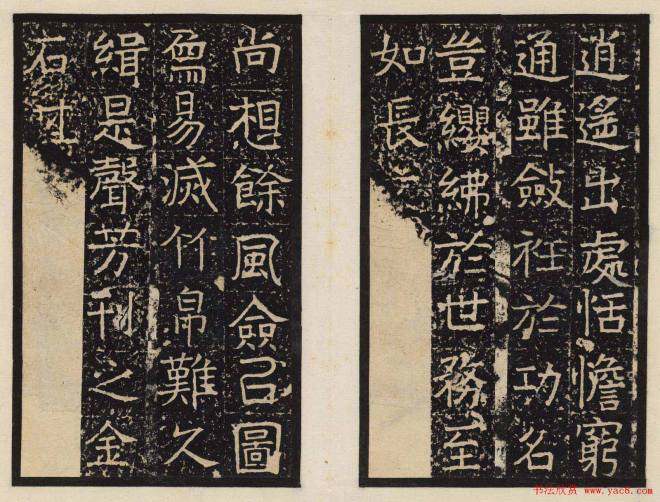 逍遙出處恬憺窮
通雖斂衽於功名
豈纓紼於世務至
如長
尚想餘風僉㠯圖
易滅竹帛難久
緝是聲芳刊之金
石其
书法欣赏 www.yac8.com